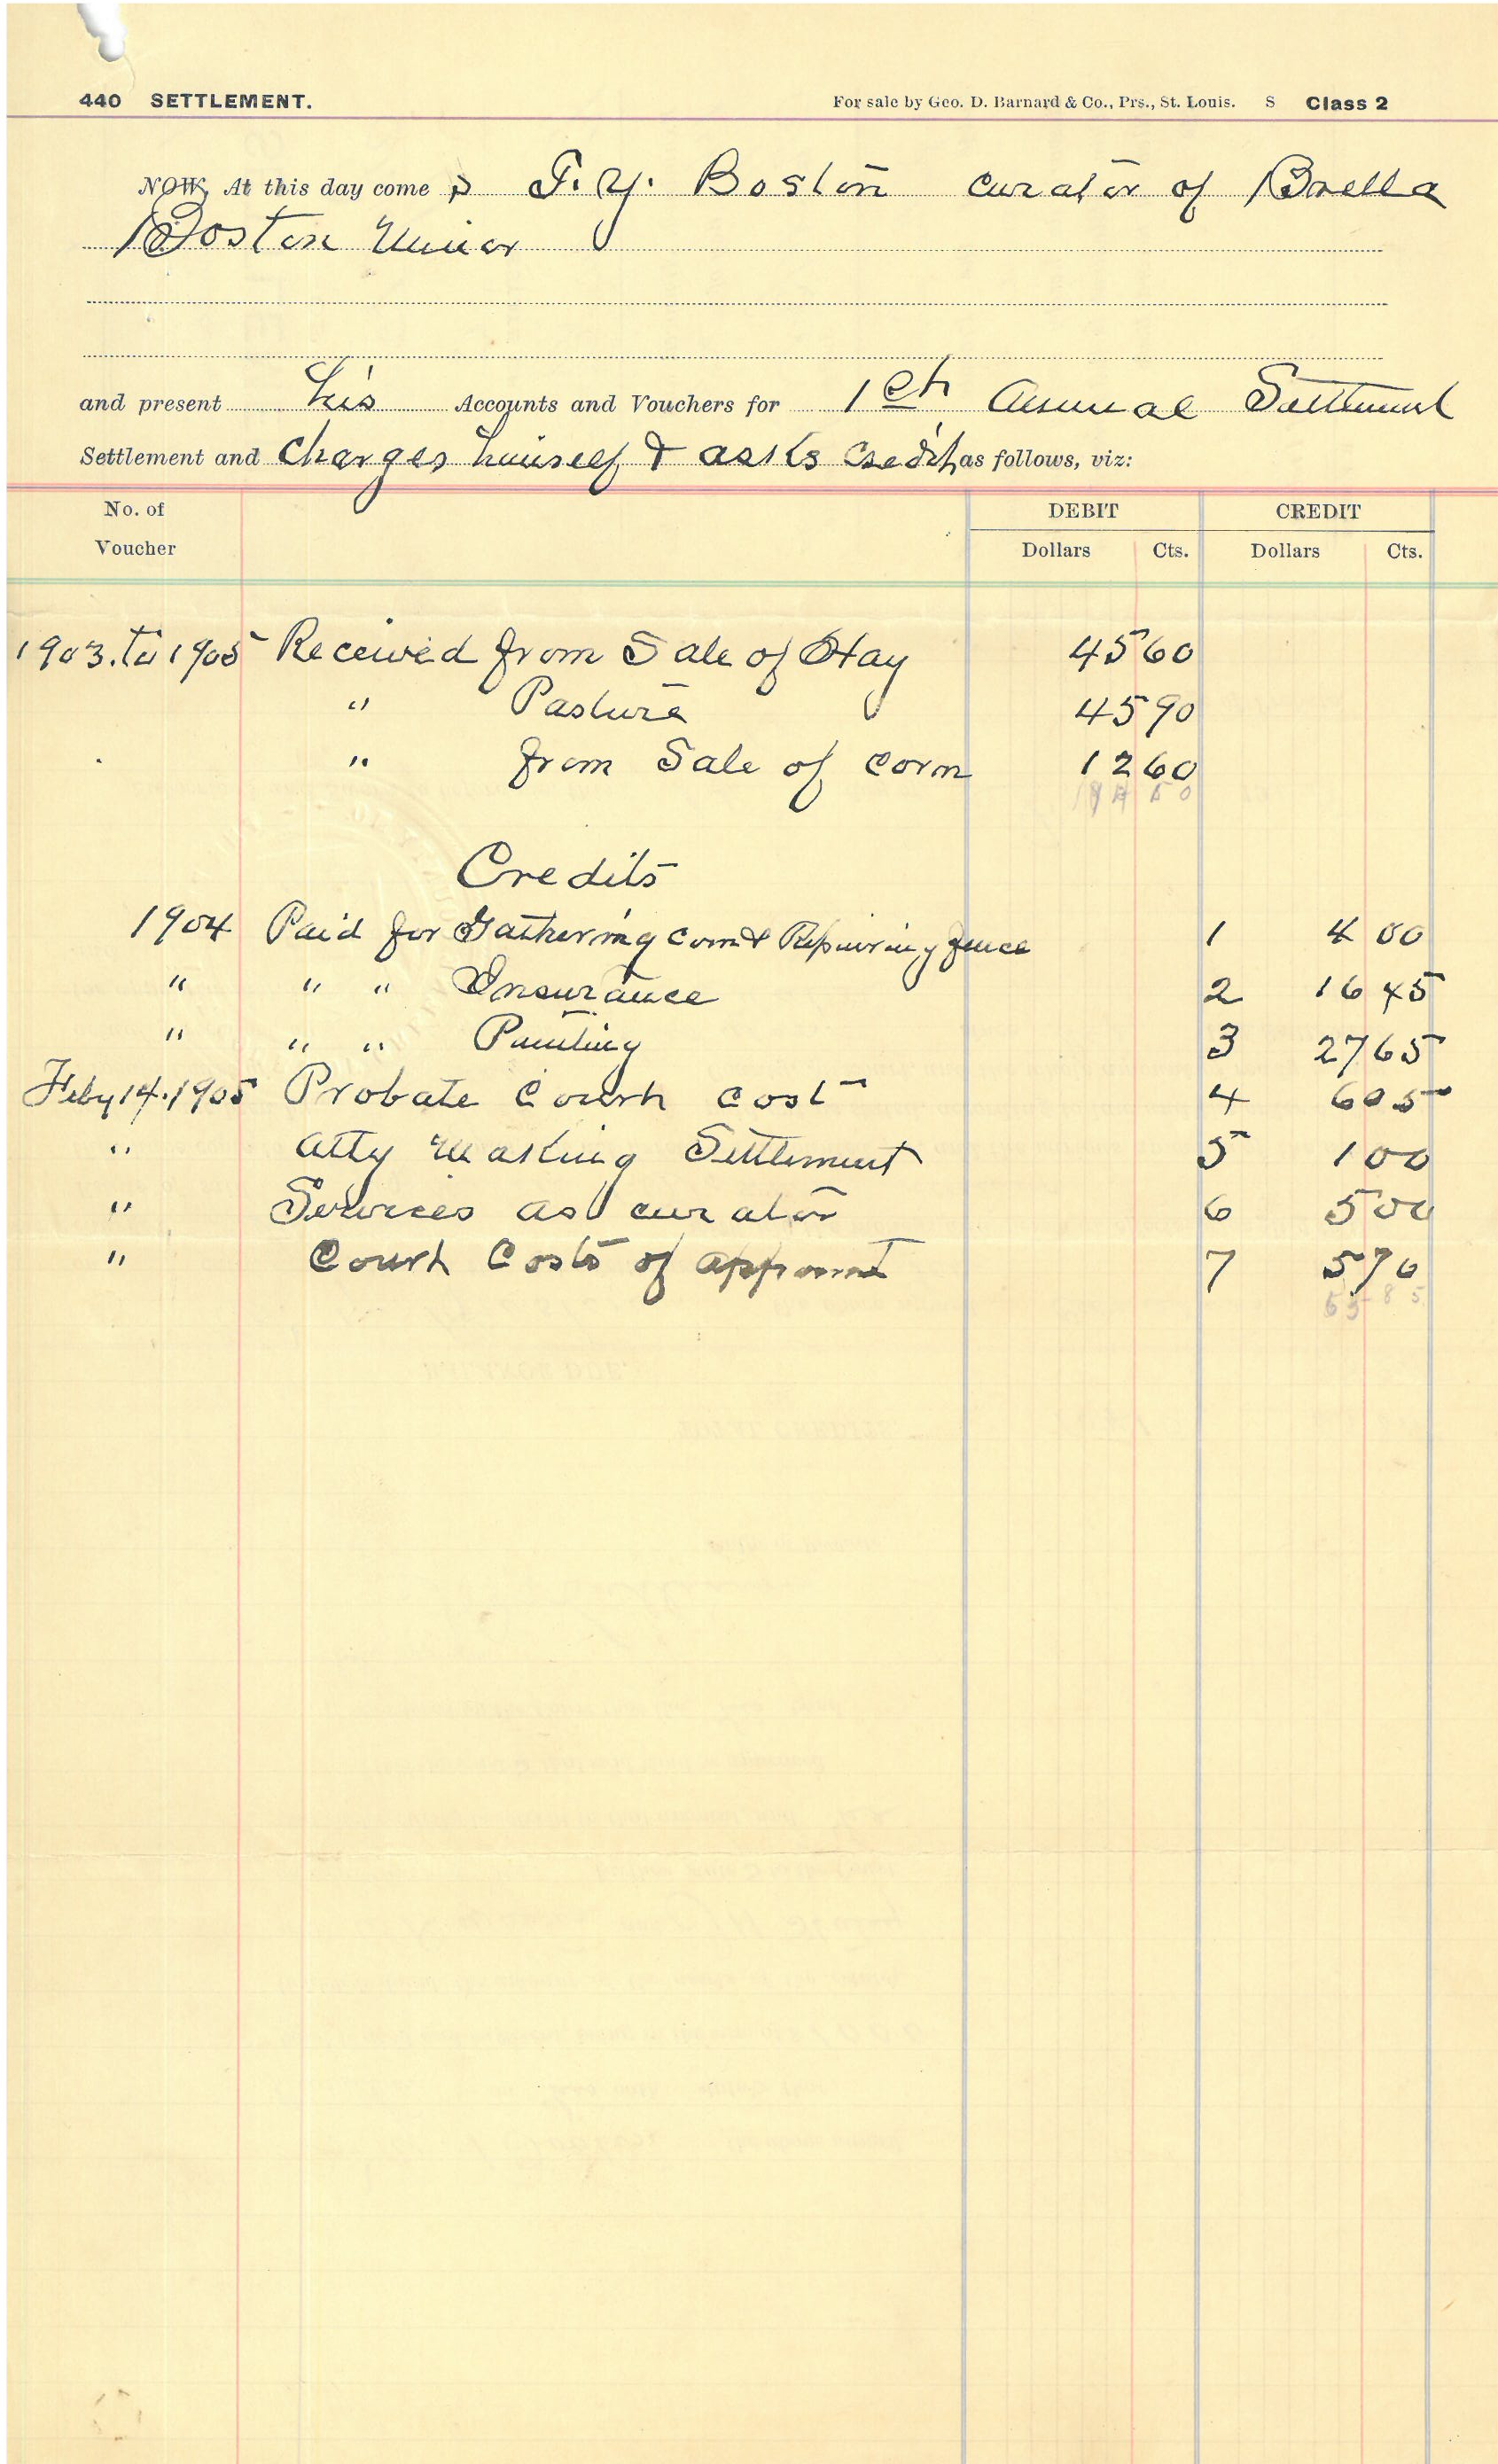 440 SETTLEMENT. For sale by Geo. D. Barnard & Co., Prs., St. Louis. S Class 2
NOW, At this day come s J. Y. Boston curator of Boella
Boston Minor
and present his Accounts and Vouchers for 1st Annual Settlement
Settlement and charges himself & asks credit as follows, viz:
No. of Voucher DEBIT CREDIT
Dollars Cts. Dollars Cts.
1903. to 1905 Received from Sale of Hay 45 60
" Pasture 45 90
" from Sale of corn 12 60
Credits
1904 Paid for Gathering corn & Repairing fence 1 4 00
" " " Insurance 2 16 45
" " " Painting 3 27 65
Feby 14. 1905 Probate Court cost 4 6 05
" Atty Making Settlement 5 1 00
" Services as curator 6 5 00
" Court Costs of appoint 7 5 70
65 85